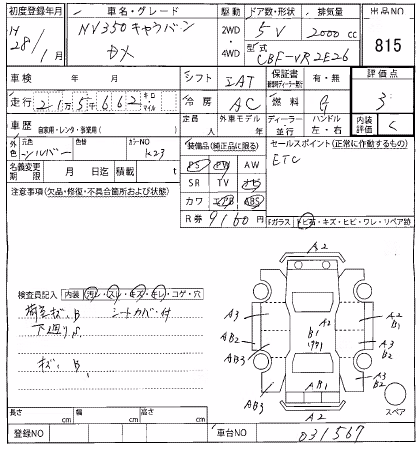 初度登録年月 車名・グレード 駆動 ドア数・形状 排気量 出品NO
H 28/1月 NV350キャラバン DX 2WD 4WD 5V 2000cc 815
型式 CBF-VR2E26
車検 年 月 シフト IAT 保証書 有・無 評価点
走行 21万5千662 キロ マイル 冷房 AC 燃料 G 3
車歴 自家用・レンタ・事業用( ) 定員 外車モデル ディーラー 並行 ハンドル 左・右 内装評価 C
外色 元色 シルバー 色替 カラーNO K23 装備品(純正品に限る) セールスポイント(正常に作動するもの)
名義変更期限 月 日迄 積載 t PS PW AW ETC
注意事項(欠品・修復・不具合箇所および状態) SR TV ナビ
カワ エアB ABS
R券 9160円 Fガラス トビ石・キズ・ヒビ・ワレ・リペア跡
A2
検査員記入 内装 汚レ・スレ・キズ・キレ・コゲ・穴
荷室キズ、B シートカバー付
下廻りS
キズ、B、
A3 A2 A2 B1
AB2 B1
AB3 A3 B2
AB3 AB1 A3 B2
A2
スペア
長さ cm 幅 cm 高さ cm
登録NO 車台NO 031567